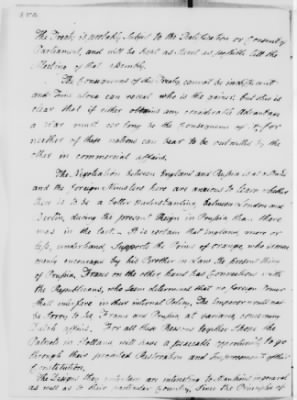 The Treaty is probably Subject to the Ratification or Consent of
Parliament, and will be kept as secret as possible till the
Meeting of that Assembly.
The Consequences of this Treaty, cannot be indifferent
and Time alone can reveal who is the gainer; but this is
clear that if either obtains any considerable Advantage
a War must ere long be the Consequence of it, for
neither of these nations can bear to be outwitted by the
other in commercial affairs.
The Negotiation between England and Russia is at a Stand
and the foreign Ministers here are anxious to learn whether
there is to be a better Understanding between London and
Berlin, during the present Reign in Prussia than there
was in the last. It is certain that England, more or
less, underhand, Supports the Prince of orange, who is more
openly encouraged by his Brother in Law the present King
of Prussia, France on the other hand has Connections with
the Republicans, who seem determined that no foreign Power
shall interfere in their internal Policy. The Emperor would not
be sorry to see France and Prussia at variance concerning
Dutch affairs. For all these Reasons together I hope the
Patriots in Holland will have a peaceable opportunity to go
through their projected Restoration and Improvement of their
Constitution.
The Designs they entertain are interesting to Mankind in general
as well as to their particular Country, Since the Principles of